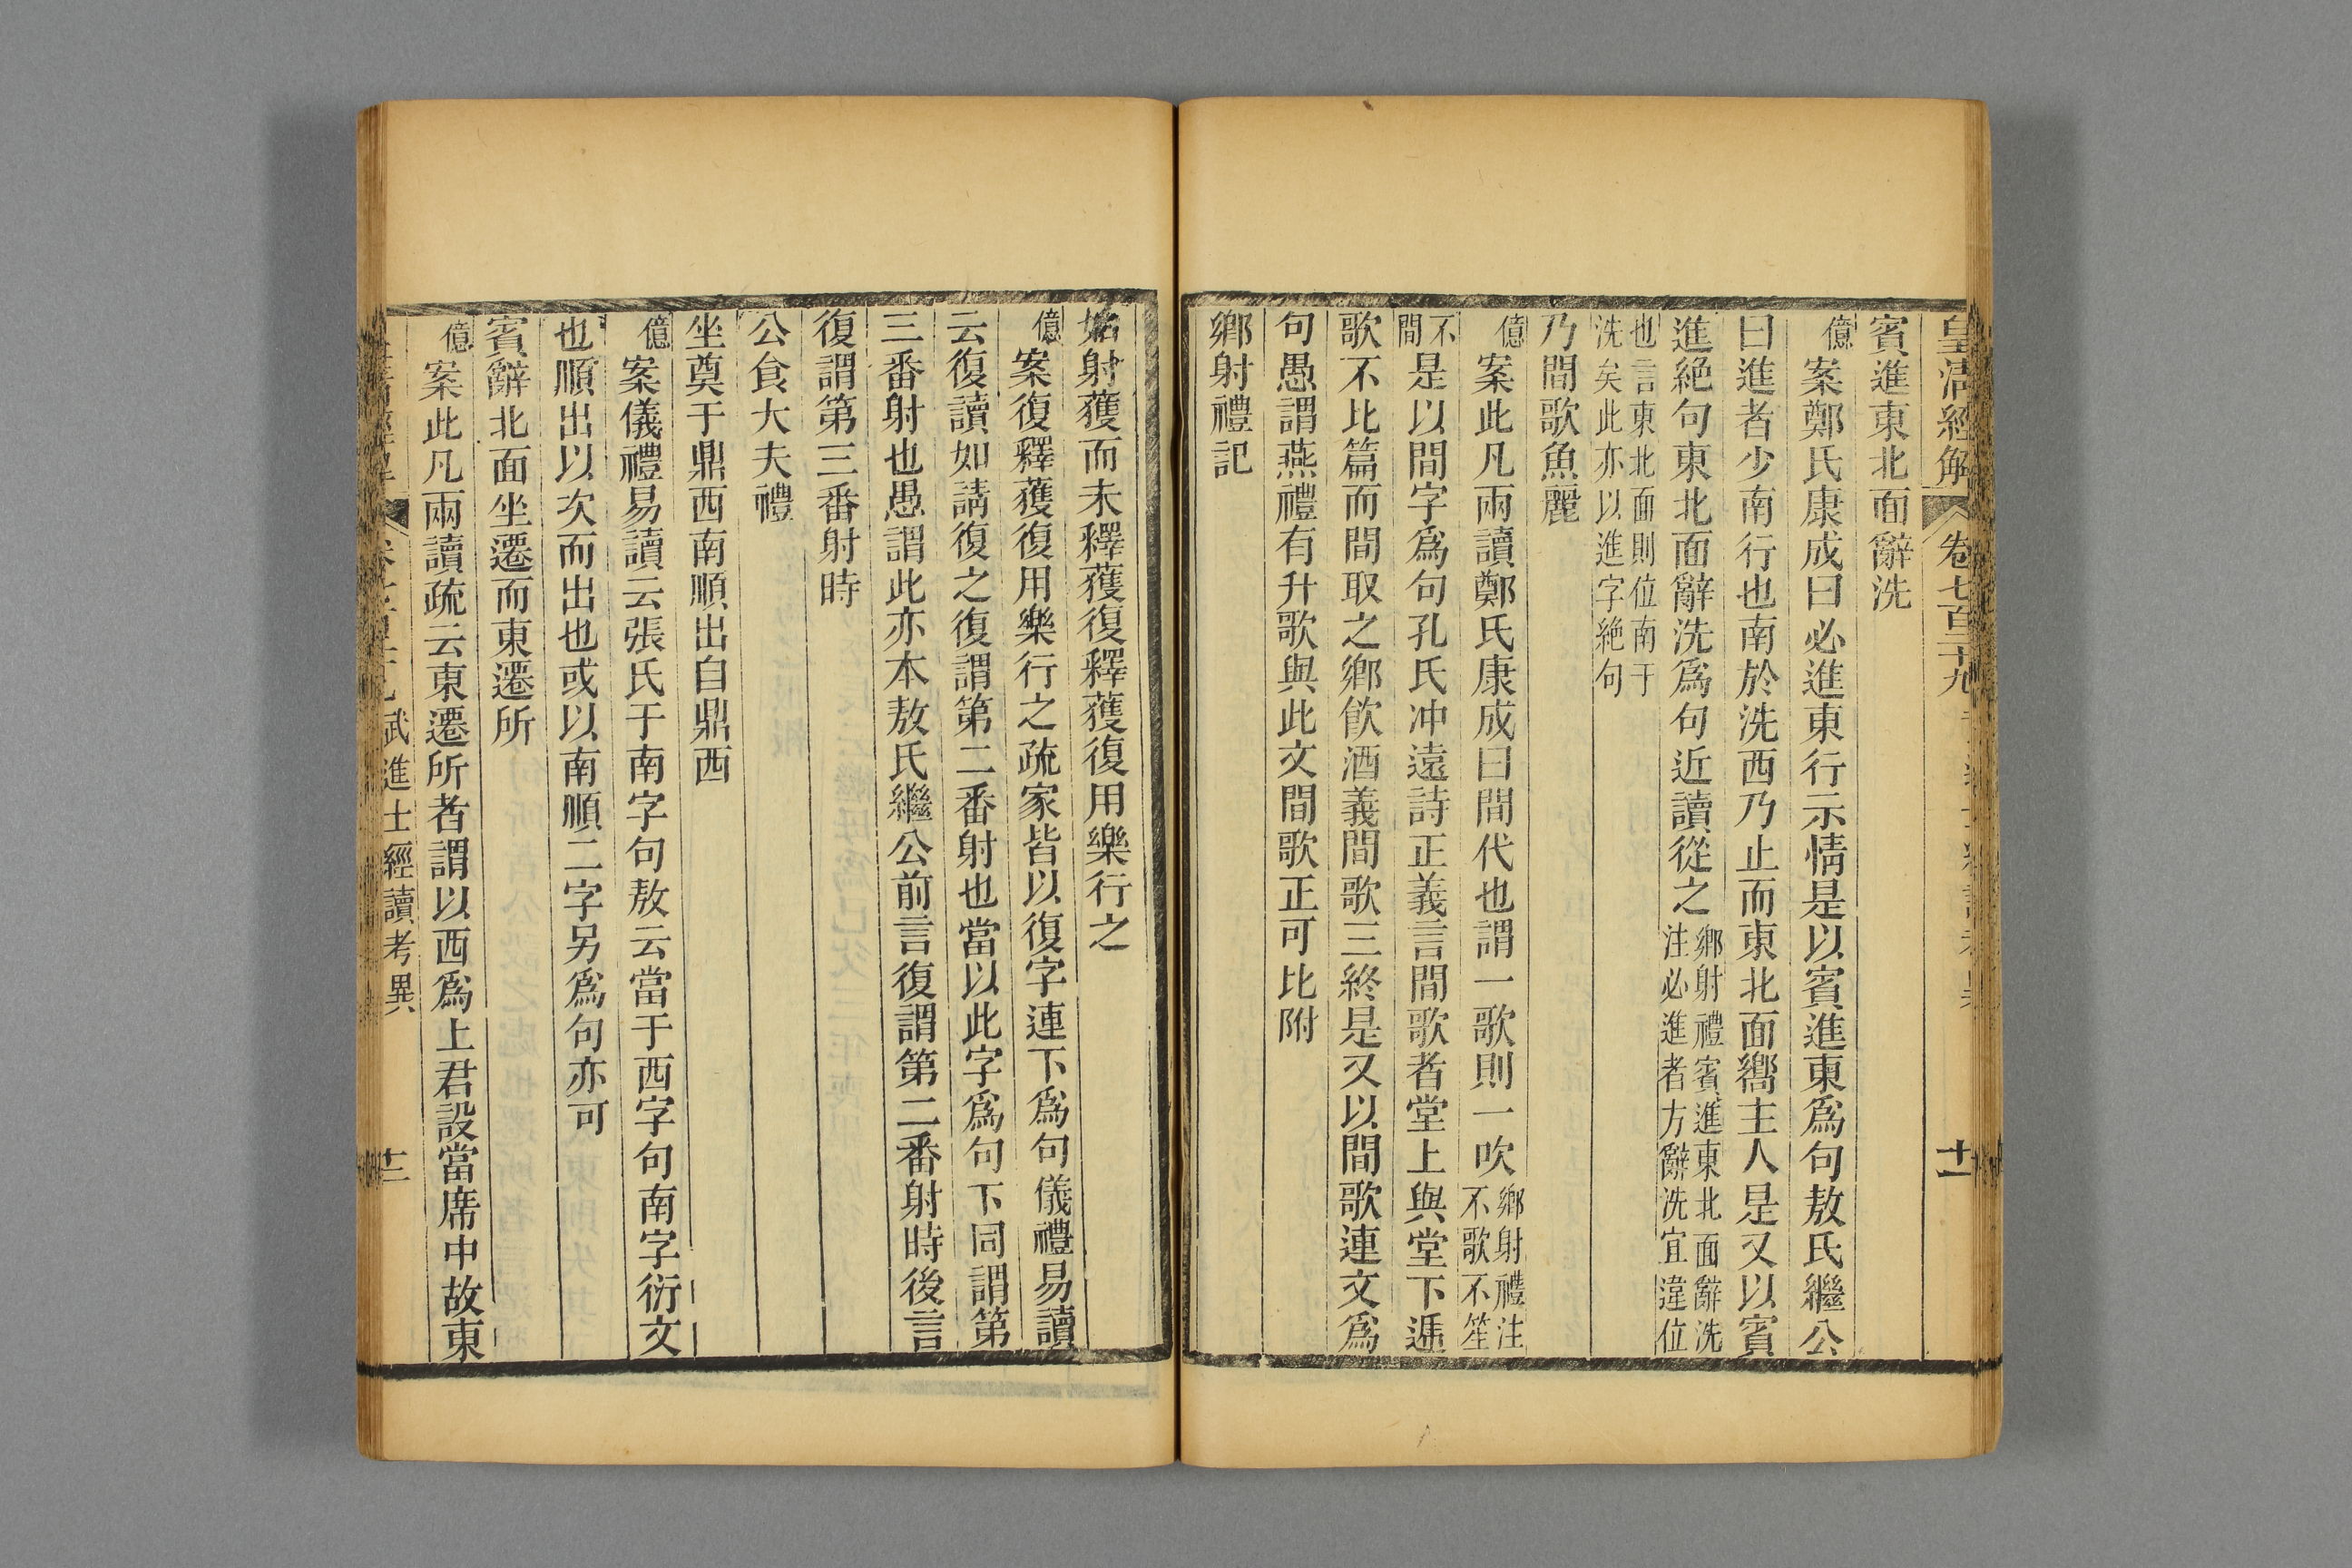 皇清經解 卷七百二十九 十一
賓進東北面辭洗
億案鄭氏康成曰必進東行示情是以賓進東為句敖氏繼公
曰進者少南行也南於洗西乃止而東北面嚮主人是又以賓
進絶句東北面辭洗為句近讀從之鄉射禮賓進東北面辭洗注必進者方辭洗宜違位
也言東北面則位南于洗矣此亦以進字絶句
乃間歌魚麗
億案此凡兩讀鄭氏康成曰間代也謂一歌則一吹鄉射禮注不歌不笙
不間是以間字為句孔氏冲遠詩正義言間歌者堂上與堂下遞
歌不比篇而間取之鄉飲酒義間歌三終是又以間歌連文為
句愚謂燕禮有升歌與此文間歌正可比附
鄉射禮記
始射獲而未釋獲復釋獲復用樂行之
億案復釋獲復用樂行之疏家皆以復字連下為句儀禮易讀
云復讀如請復之復謂第二番射也當以此字為句下同謂第
三番射也愚謂此亦本敖氏繼公前言復謂第二番射時後言
復謂第三番射時
公食大夫禮
坐奠于鼎西南順出自鼎西
億案儀禮易讀云張氏于南字句敖云當于西字句南字衍文
也順出以次而出也或以南順二字另為句亦可
賓辭北面坐遷而東遷所
億案此凡兩讀疏云東遷所者謂以西為上君設當席中故東
武進士經讀考異 十二